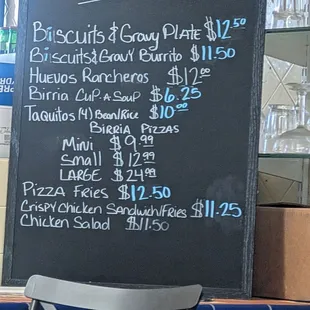 Biscuits & Gravy Plate $12.50
Biscuits & Gravy Burrito $11.50
Huevos Rancheros $12.00
Birria Cup A Soup $6.25
Taquitos (4) Bean/Rice $10.00
Birria Pizzas
Mini $9.99
Small $12.99
Large $24.99
Pizza Fries $12.50
Crispy Chicken Sandwich/Fries $11.25
Chicken Salad $11.50